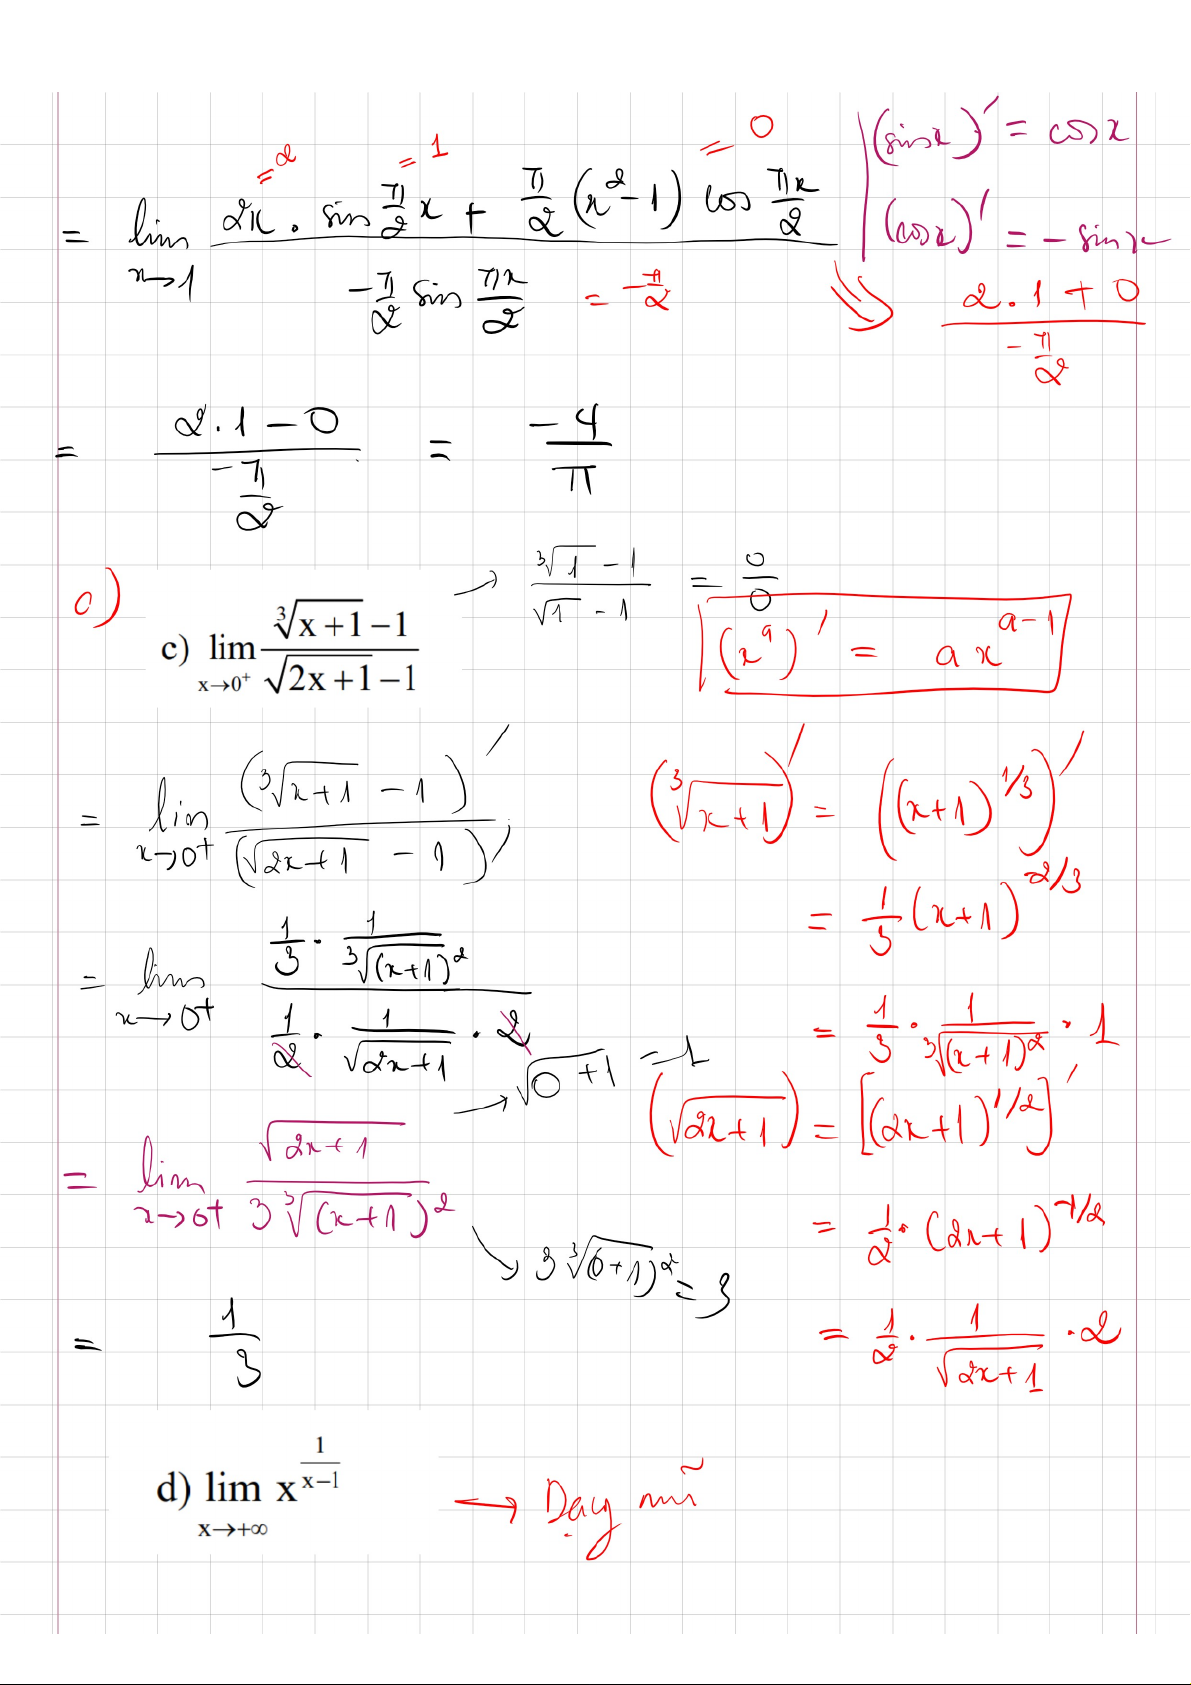 = lim x→1 (2x . sin π/2 x + π/2 (x² - 1) cos πx/2) / (-π/2 sin πx/2)
= 2
= 1
= 0
= -π/2
(sinx)' = cosx
(cosx)' = - sinx
(2 . 1 + 0) / (-π/2)
= (2 . 1 - 0) / (-π/2) = -4/π
c)
c) lim x→0⁺ (∛(x+1) - 1) / (√(2x+1) - 1)
→ (∛1 - 1) / (√1 - 1) = 0/0
(xᵃ)' = a xᵃ⁻¹
= lim x→0⁺ (∛(x+1) - 1)' / (√(2x+1) - 1)'
(∛(x+1))' = ((x+1)^1/3)'
= 1/3 (x+1)^-2/3
= lim x→0⁺ (1/3 . 1/∛(x+1)²) / (1/2 . 1/√(2x+1) . 2)
= 1/3 . 1/∛(x+1)² . 1
→ √(0+1) = 1
(√(2x+1)) = [(2x+1)^1/2]'
= lim x→0⁺ √(2x+1) / 3∛(x+1)²
= 1/2 . (2x+1)^-1/2
↘ 3∛(0+1)² = 3
= 1/3
= 1/2 . 1/√(2x+1) . 2
d) lim x→+∞ x^(1/(x-1))
→ Dạng mũ